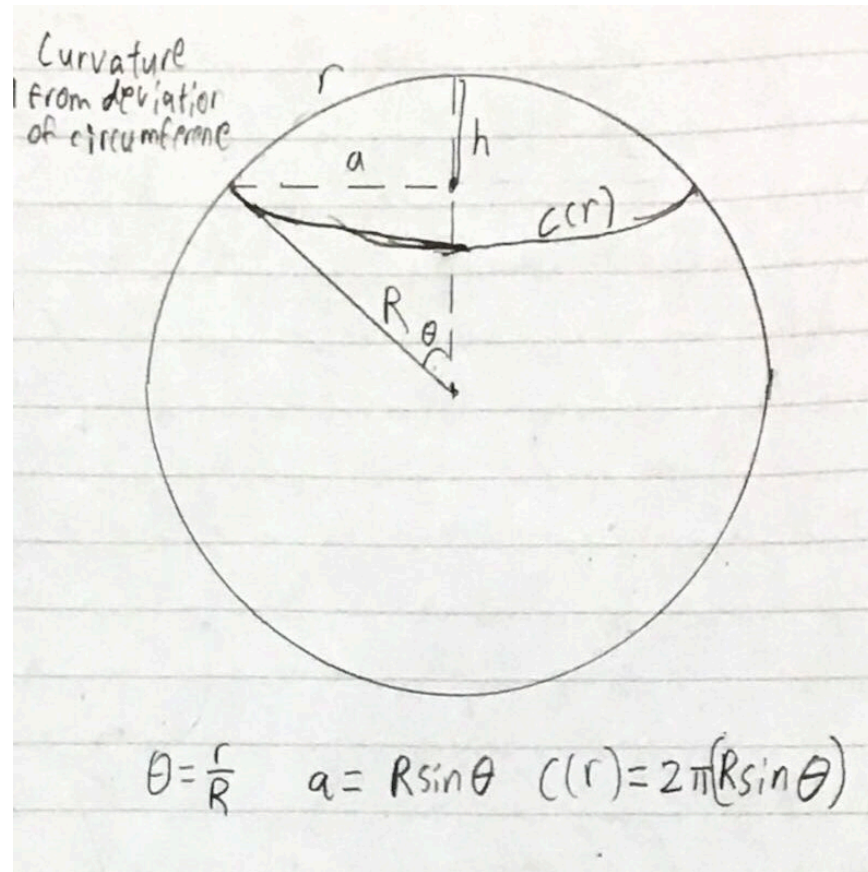 Curvature
from deviation
of circumference
r
h
a
C(r)
R
θ
θ = r/R a = R sin θ C(r) = 2π(R sin θ)